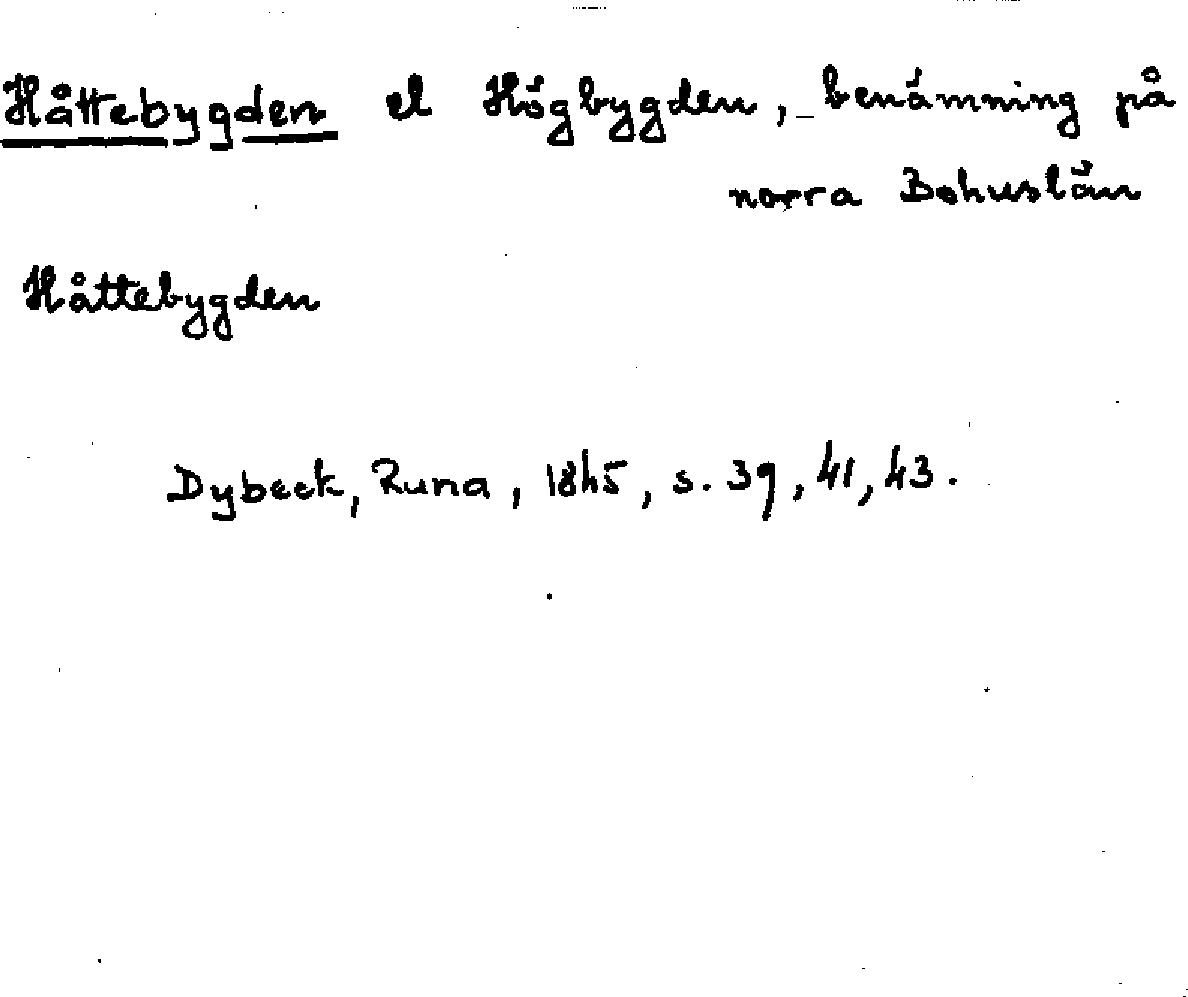 Håttebygden el Högbygden, benämning på
norra Bohuslän
Håttebygden
Dybeck, Runa, 1845, s. 39, 41, 43.